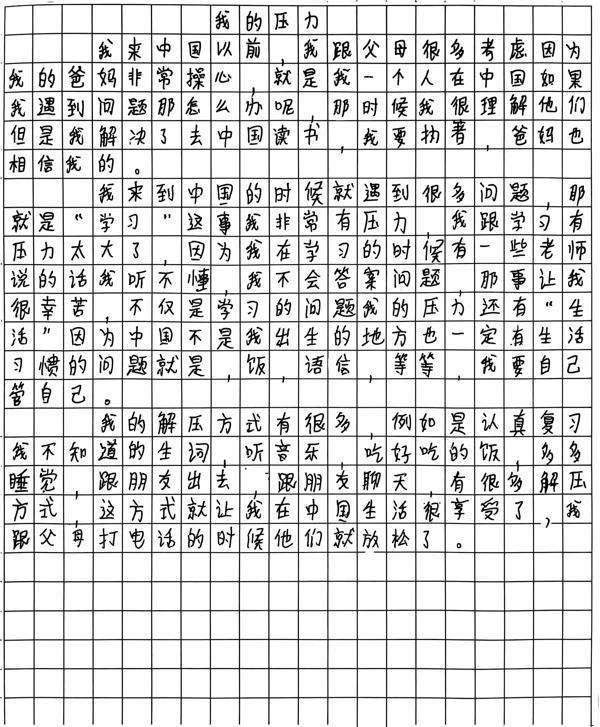 我的压力
我来中国以前，我跟父母很多考虑因为
我的爸妈非常操心，就是我一个人在中国如果
我遇到问题那怎么办呢，那时候我很理解他们
但是我解决了去中国读书，我要抅著，爸妈也
相信我的。
我来到中国的时候就遇到很多问题，那
就是“学习”这事我非常有压力，我跟学习有
压力太大了，因为我在学习的时候有一些老师
说的话我听不懂，我不会答案问题，那事让我
很幸苦，不仅是学习的问题我的压力还有“生
活”因为中国不是我出生的地方也一定有生活
习惯的问题就是，饭，语信，等等，我要自己
管自己。
我的解压方式有很多，例如是认真复习
我不知道的生词，听音乐，吃好吃的饭，多多
睡觉，跟朋友出去，跟朋友聊天，有很多解压
方式，这方式就让我在中国生活很享受了，我
跟父母打电话的时候他们就放松了。